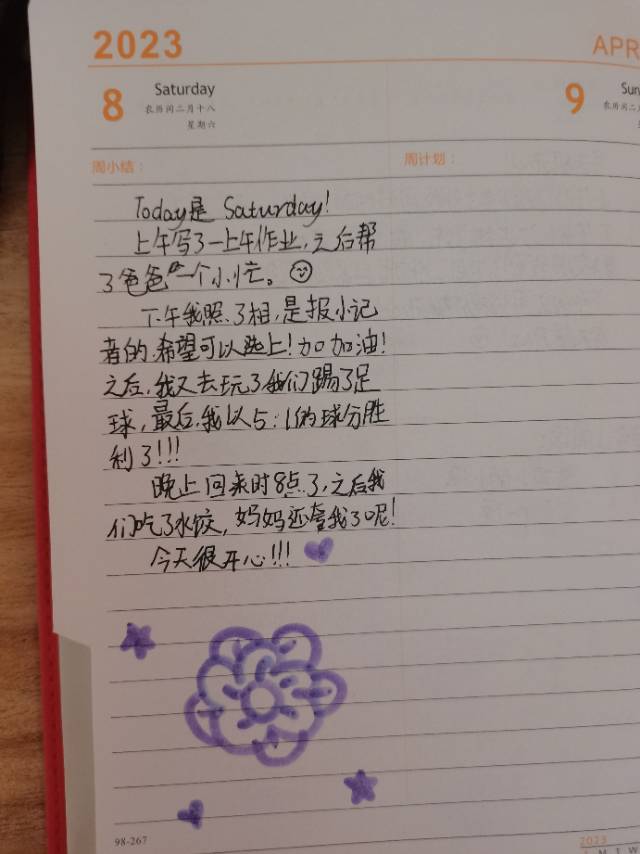 2023
APR
8
Saturday
农历闰二月十八
星期六
9
Sun
农历闰二
周小结：
周计划：
Today是 Saturday!
上午写了一上午作业，之后帮
了爸爸一个小忙。
下午我照了相，是报小记
者的，希望可以选上！加加油！
之后，我又去玩了我们踢了足
球，最后，我以5:1的球分胜
利了!!!
晚上回来时8点了，之后我
们吃了水饺，妈妈还夸我了呢！
今天很开心!!!
98-267
2023
M T W